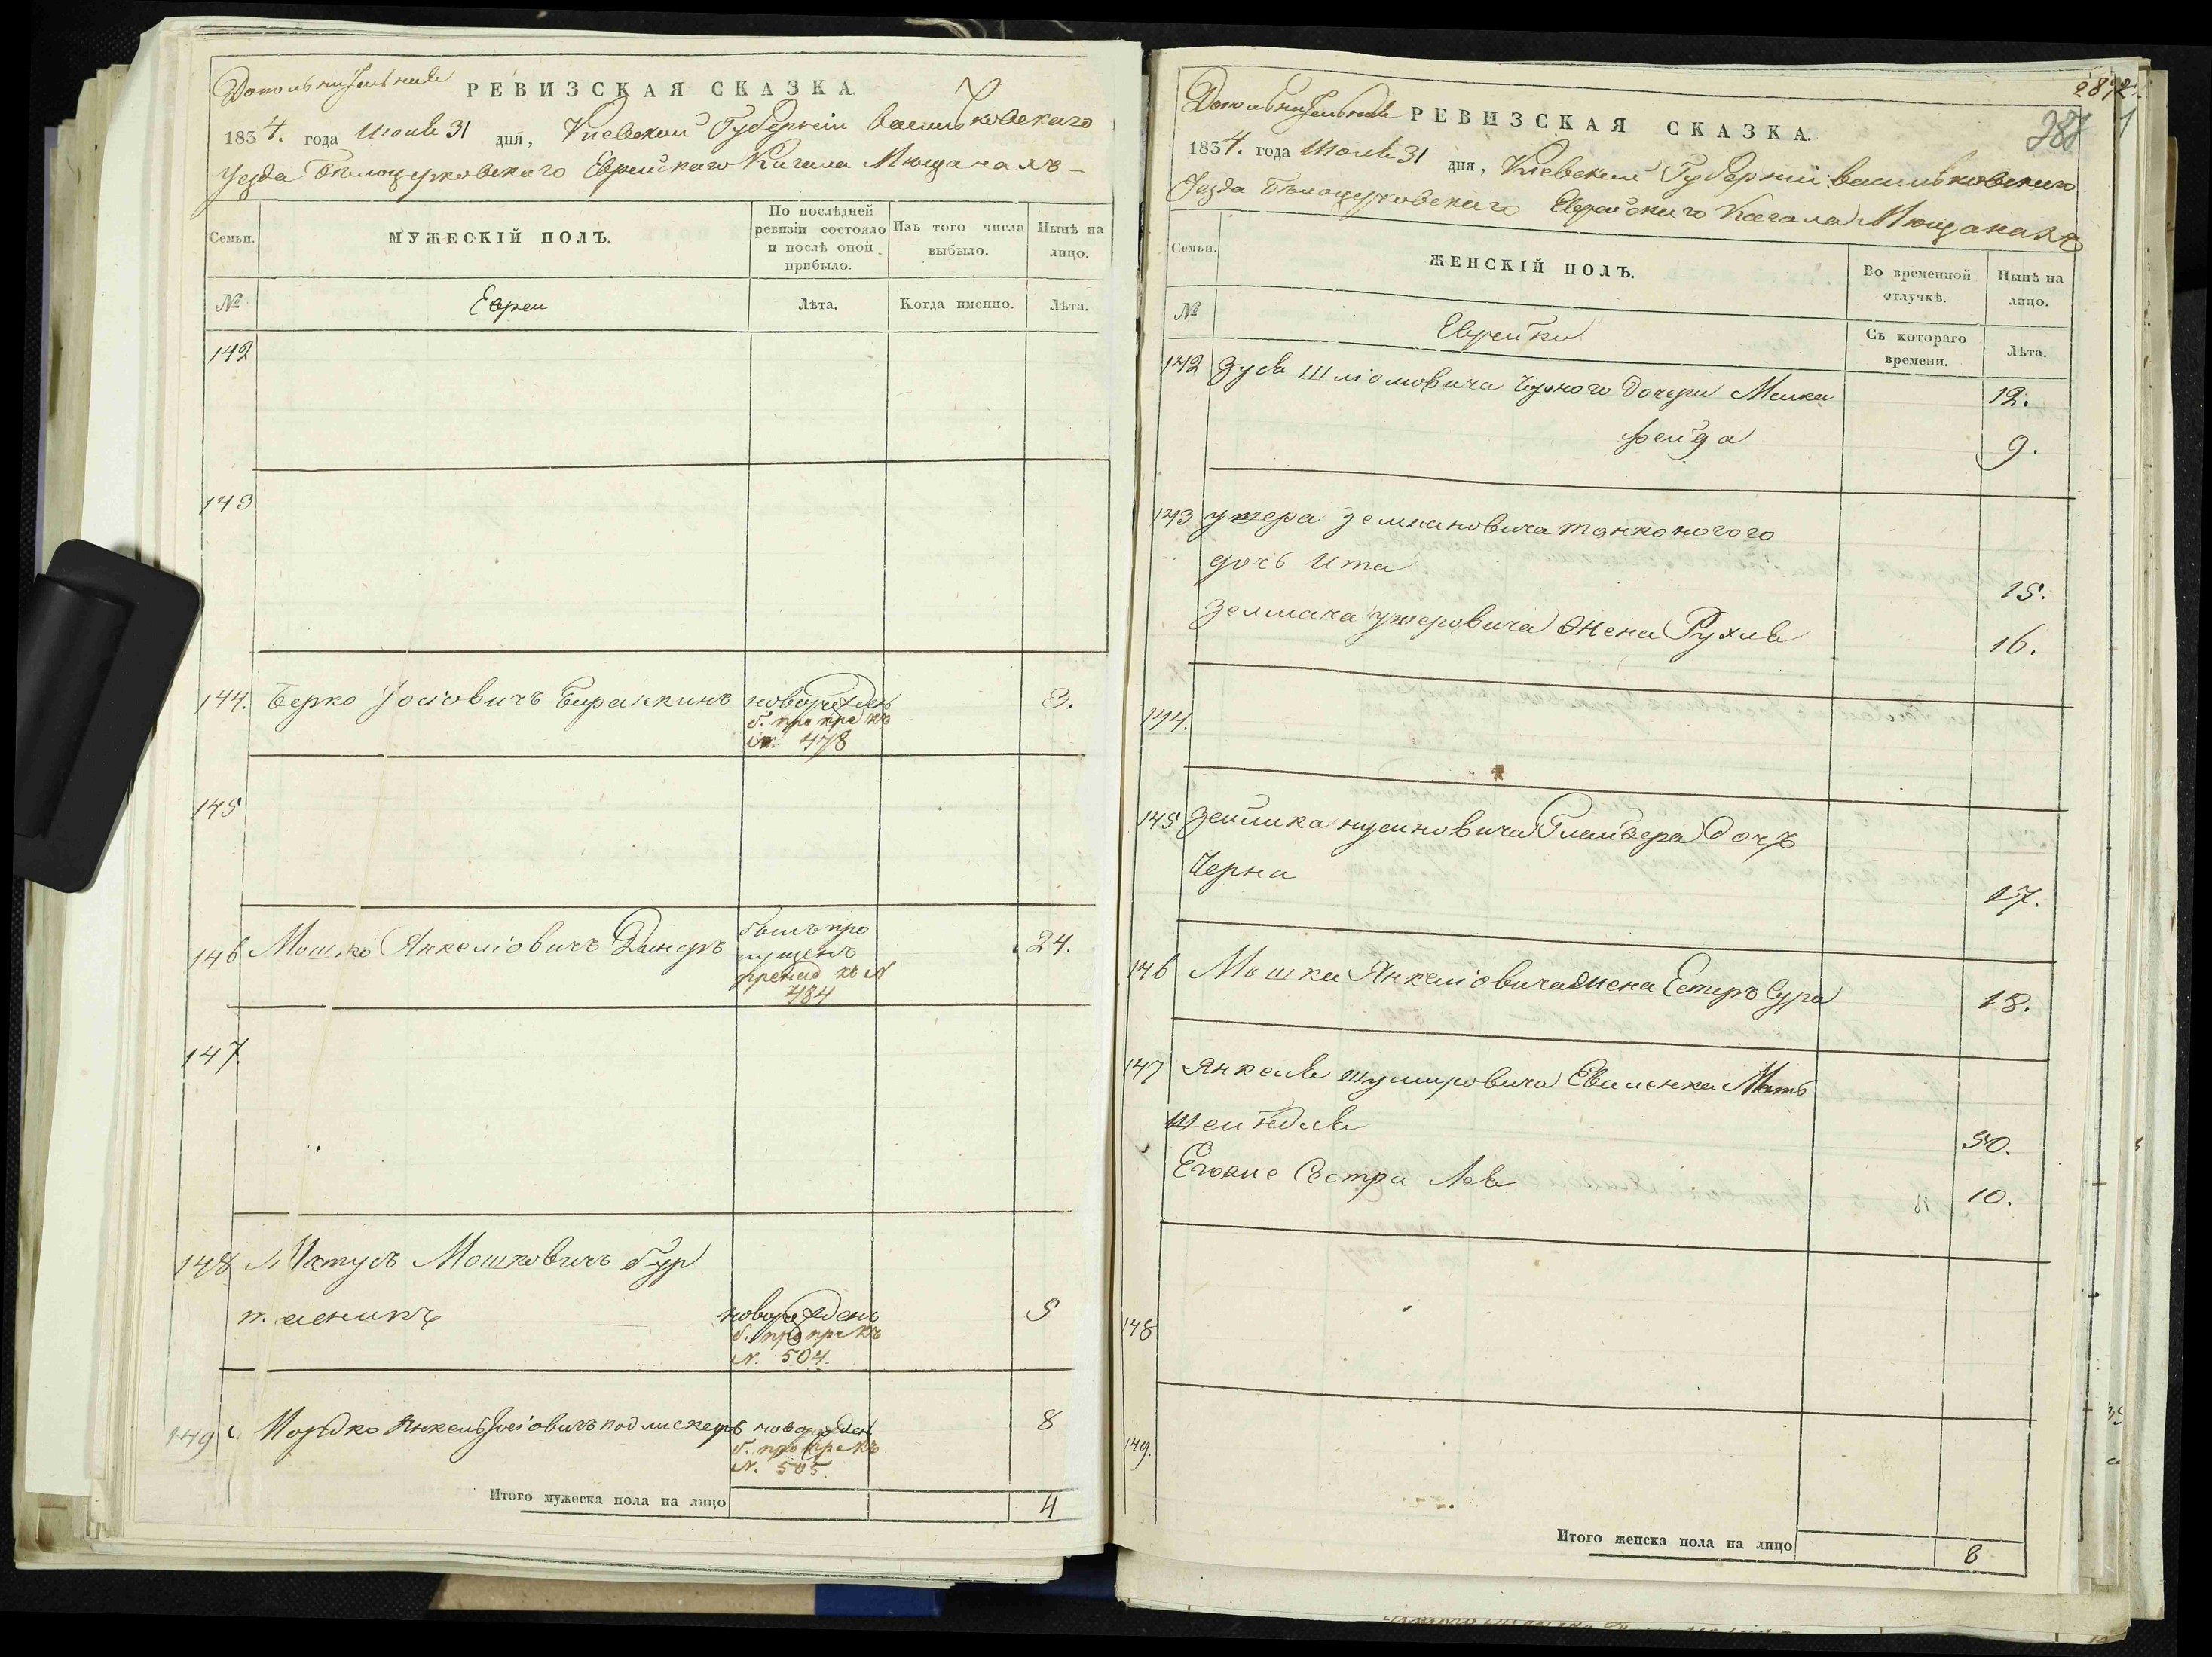 Дополнительная РЕВИЗСКАЯ СКАЗКА.
1834. года Июля 31 дня, Киевской Губернии Васильковского
Уезда Белоцерковского Еврейского Кагала Мещанахъ
Семьи.
МУЖЕСКІЙ ПОЛЪ.
По послѣдней ревизіи состояло и послѣ оной прибыло.
Изъ того числа выбыло.
Нынѣ на лицо.
№
Евреи
Лѣта.
Когда именно.
Лѣта.
142
143
144. Берко Іосіовичъ новорожденъ 3.
№. 478
145
146 Мошко Янкеліовичъ былъ про 24.
пущенъ
къ №
484
147.
148 Матусъ Мошковичъ
новорожденъ 5
№. 504.
149 Мордко Янкель Іосіовичъ новорожден 8
№. 505.
Итого мужеска пола на лицо 4
2872.
Дополнительная РЕВИЗСКАЯ СКАЗКА.
1834. года Июля 31 дня, Киевской Губернии Васильковского
Уезда Белоцерковского Еврейского Кагала Мещанахъ
Семьи.
ЖЕНСКІЙ ПОЛЪ.
Во временной отлучкѣ.
Нынѣ на лицо.
№
Еврейки
Съ котораго времени.
Лѣта.
142 Зуся Шліомовича Чорного Дочери Малка 12.
Фейга 9.
143 Ушера Зелмановича Тонконогого
дочь Ита 15.
Зелмана Ушеровича Жена Рухля 16.
144.
145 Зейлика Нусиновича Дочь
Черна 17.
146 Мошка Янкеліовича Жена Естеръ Сура 18.
147 Янкеля Мать
Шейндля 50.
Егоже Сестра Лея 10.
148
149.
Итого женска пола на лицо 8